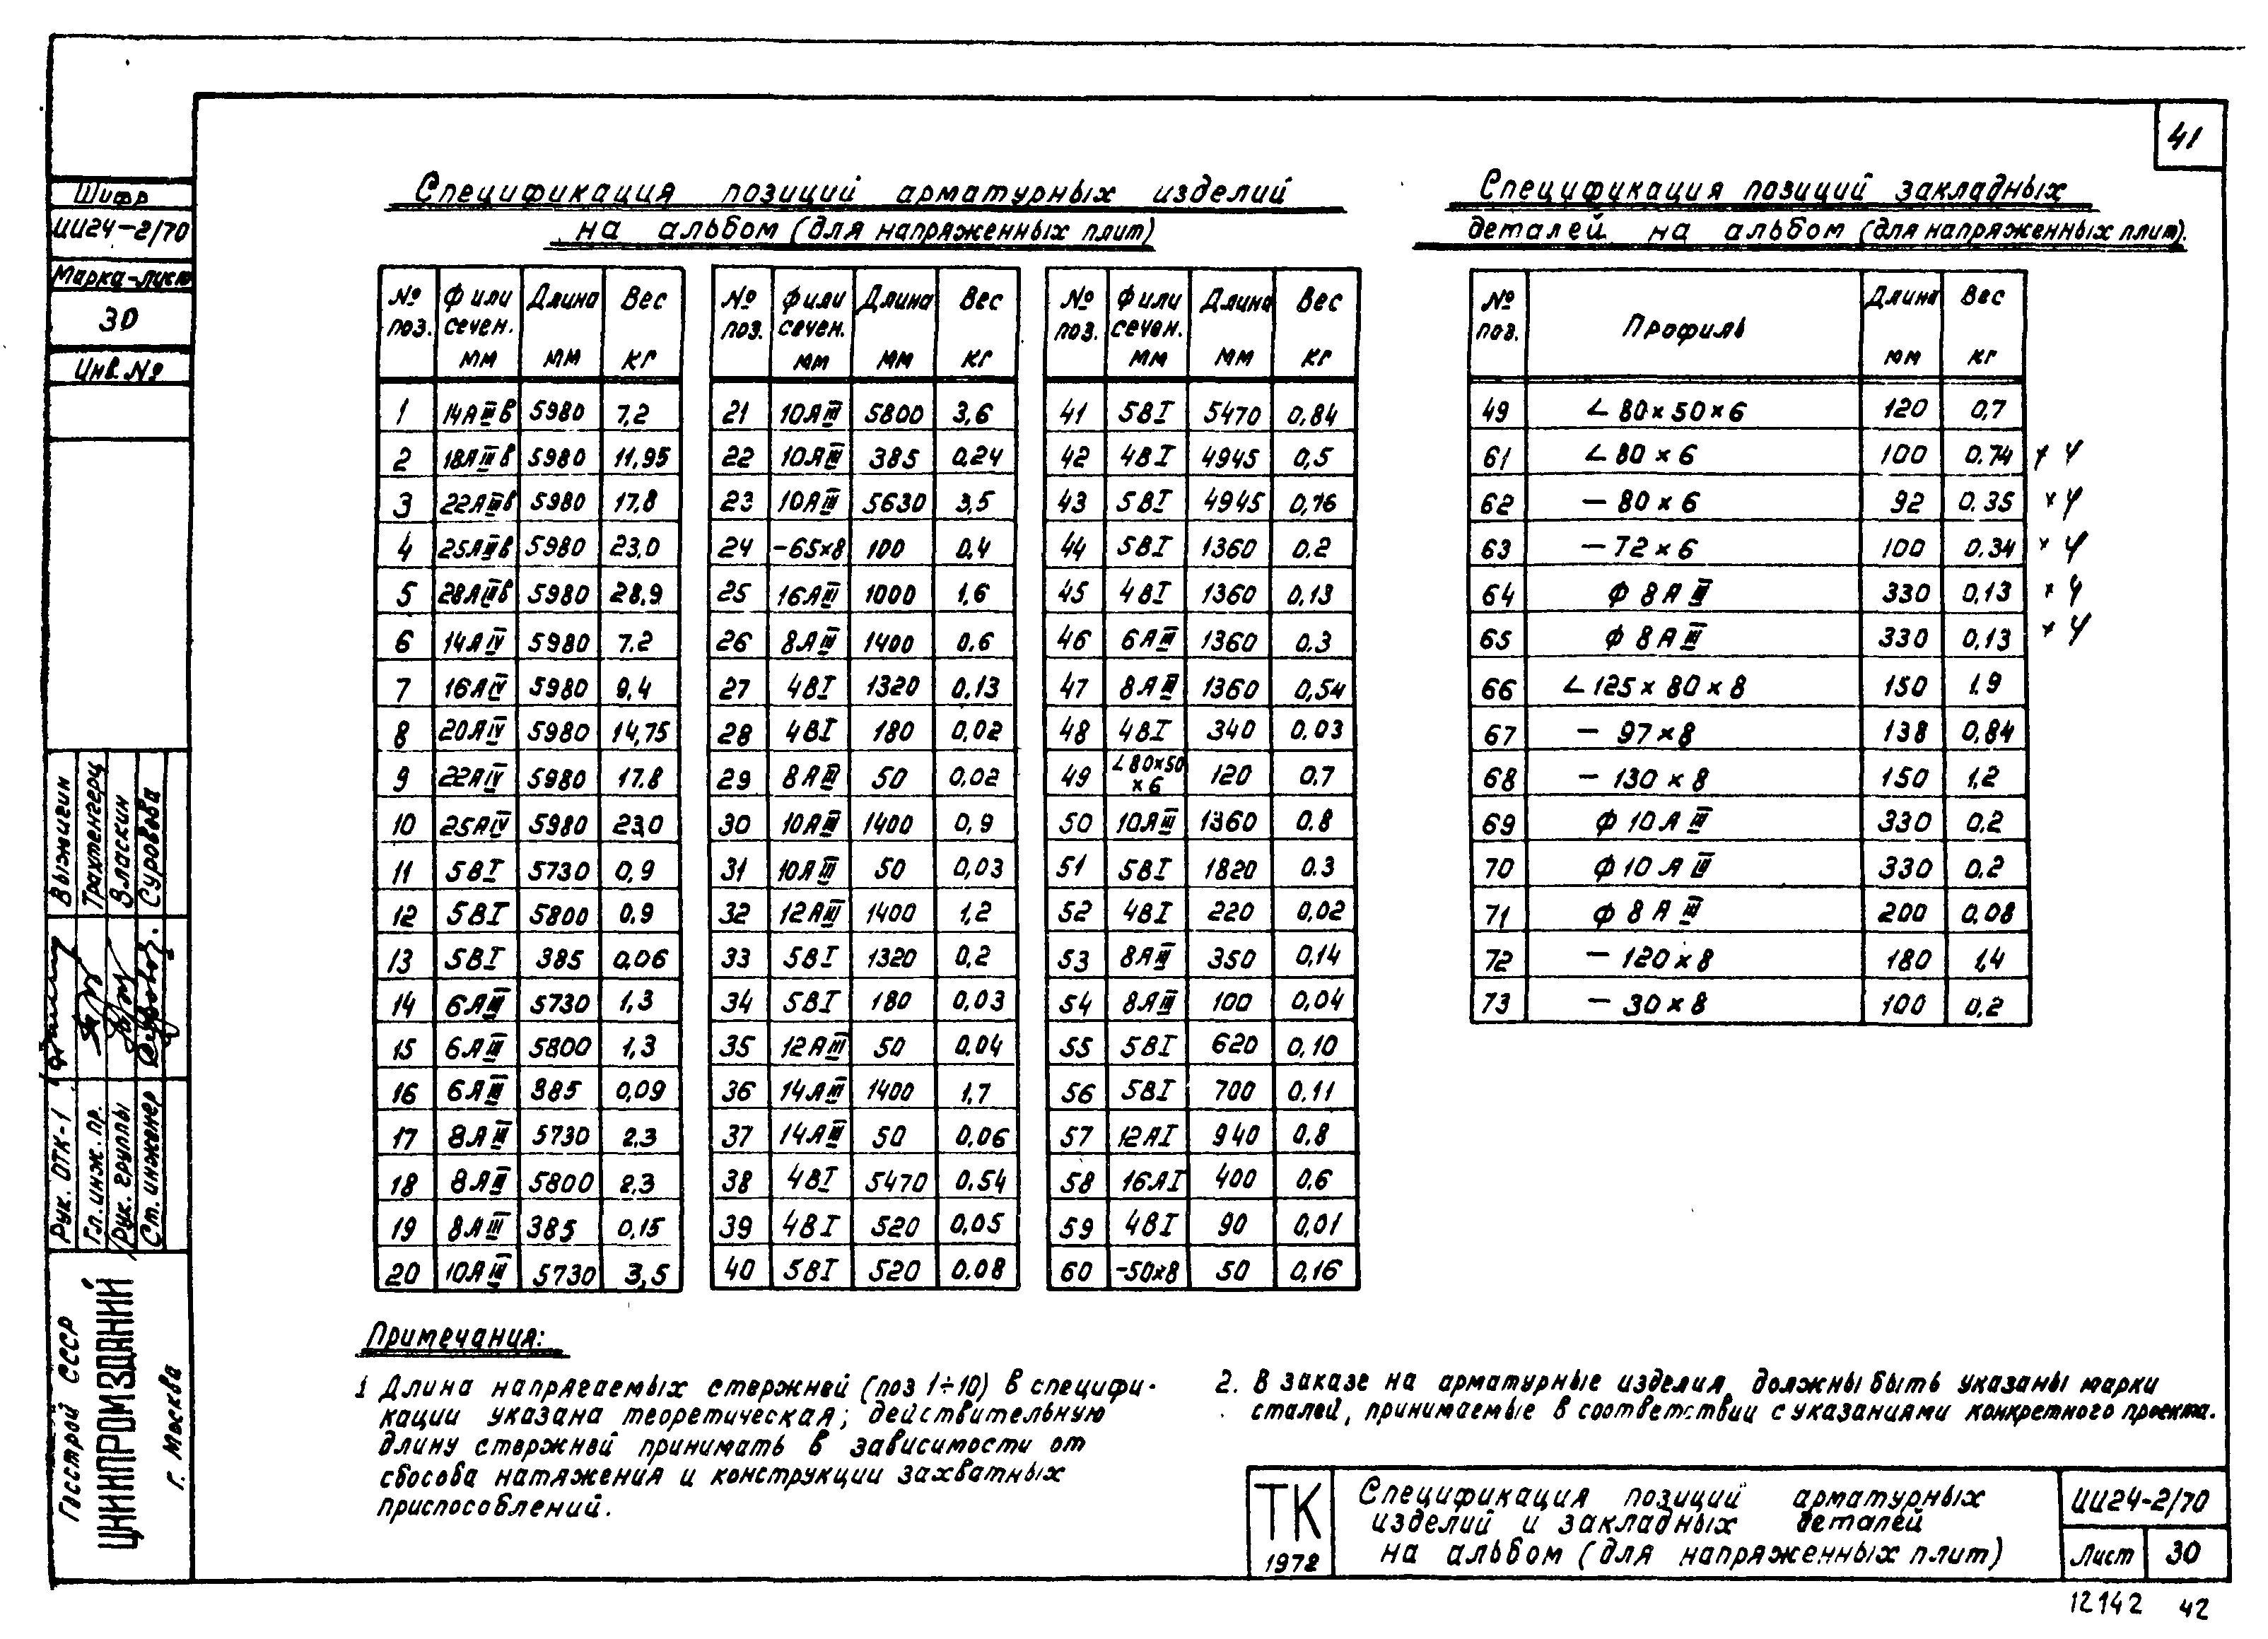 41
Шифр
ИИ24-2/70
Марка-лист
30
Инв. №
Спецификация позиций арматурных изделий
на альбом (для напряженных плит)
№ поз. Ф или сечен. мм Длина мм Вес кг
1 14АIIIв 5980 7,2
2 18АIIIв 5980 11,95
3 22АIIIв 5980 17,8
4 25АIIIв 5980 23,0
5 28АIIIв 5980 28,9
6 14АIV 5980 7.2
7 16АIV 5980 9,4
8 20АIV 5980 14,75
9 22АIV 5980 17.8
10 25АIV 5980 23,0
11 5ВI 5730 0,9
12 5ВI 5800 0.9
13 5ВI 385 0,06
14 6АIII 5730 1,3
15 6АIII 5800 1,3
16 6АIII 385 0,09
17 8АIII 5730 2,3
18 8АIII 5800 2,3
19 8АIII 385 0,15
20 10АIII 5730 3,5
№ поз. Ф или сечен. мм Длина мм Вес кг
21 10АIII 5800 3,6
22 10АIII 385 0,24
23 10АIII 5630 3,5
24 -65×8 100 0,4
25 16АIII 1000 1,6
26 8АIII 1400 0.6
27 4ВI 1320 0,13
28 4ВI 180 0,02
29 8АIII 50 0,02
30 10АIII 1400 0,9
31 10АIII 50 0,03
32 12АIII 1400 1,2
33 5ВI 1320 0,2
34 5ВI 180 0,03
35 12АIII 50 0.04
36 14АIII 1400 1,7
37 14АIII 50 0,06
38 4ВI 5470 0.54
39 4ВI 520 0,05
40 5ВI 520 0.08
№ поз. Ф или сечен. мм Длина мм Вес кг
41 5ВI 5470 0,84
42 4ВI 4945 0,5
43 5ВI 4945 0,76
44 5ВI 1360 0.2
45 4ВI 1360 0,13
46 6АIII 1360 0.3
47 8АIII 1360 0,54
48 4ВI 340 0.03
49 ∠80×50×6 120 0.7
50 10АIII 1360 0.8
51 5ВI 1820 0.3
52 4ВI 220 0,02
53 8АIII 350 0,14
54 8АIII 100 0,04
55 5ВI 620 0,10
56 5ВI 700 0.11
57 12АI 940 0,8
58 16АI 400 0,6
59 4ВI 90 0,01
60 -50×8 50 0,16
Спецификация позиций закладных
деталей на альбом (для напряженных плит).
№ поз. Профиль Длина мм Вес кг
49 ∠ 80×50×6 120 0,7
61 ∠ 80×6 100 0.74 × 4
62 - 80×6 92 0.35 × 4
63 - 72×6 100 0.34 × 4
64 ф 8АIII 330 0,13 × 4
65 ф 8АIII 330 0,13 × 4
66 ∠ 125×80×8 150 1.9
67 - 97×8 138 0,84
68 - 130×8 150 1,2
69 ф 10АIII 330 0,2
70 ф 10АIII 330 0.2
71 ф 8АIII 200 0,08
72 - 120×8 180 1,4
73 - 30×8 100 0,2
Примечания:
1 Длина напрягаемых стержней (поз 1÷10) в специфи-
кации указана теоретическая; действительную
длину стержней принимать в зависимости от
сбособа натяжения и конструкции захватных
приспособлений.
2. В заказе на арматурные изделия должны быть указаны марки
сталей, принимаемые в соответствии с указаниями конкретного проекта.
Рук. ОТК-1 Выжигин
Гл. инж. пр. Трахтенгерц
Рук. группы Власкин
Ст. инженер Суровова
Госстрой СССР
ЦНИИПРОМЗДАНИЙ
г. Москва
ТК
1972
Спецификация позиций арматурных
изделий и закладных деталей
на альбом (для напряженных плит)
ИИ24-2/70
Лист 30
12142 42